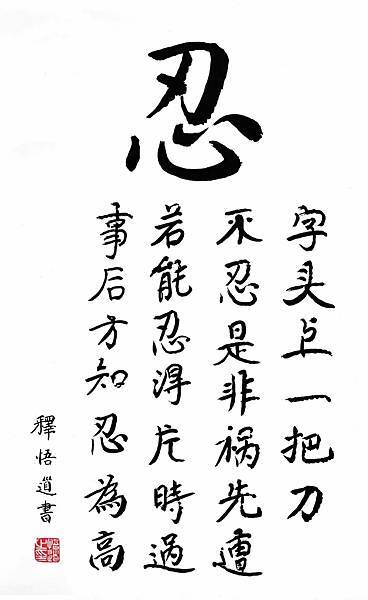 忍
字头上一把刀
不忍是非祸先遭
若能忍得片時過
事后方知忍為高
釋悟道書